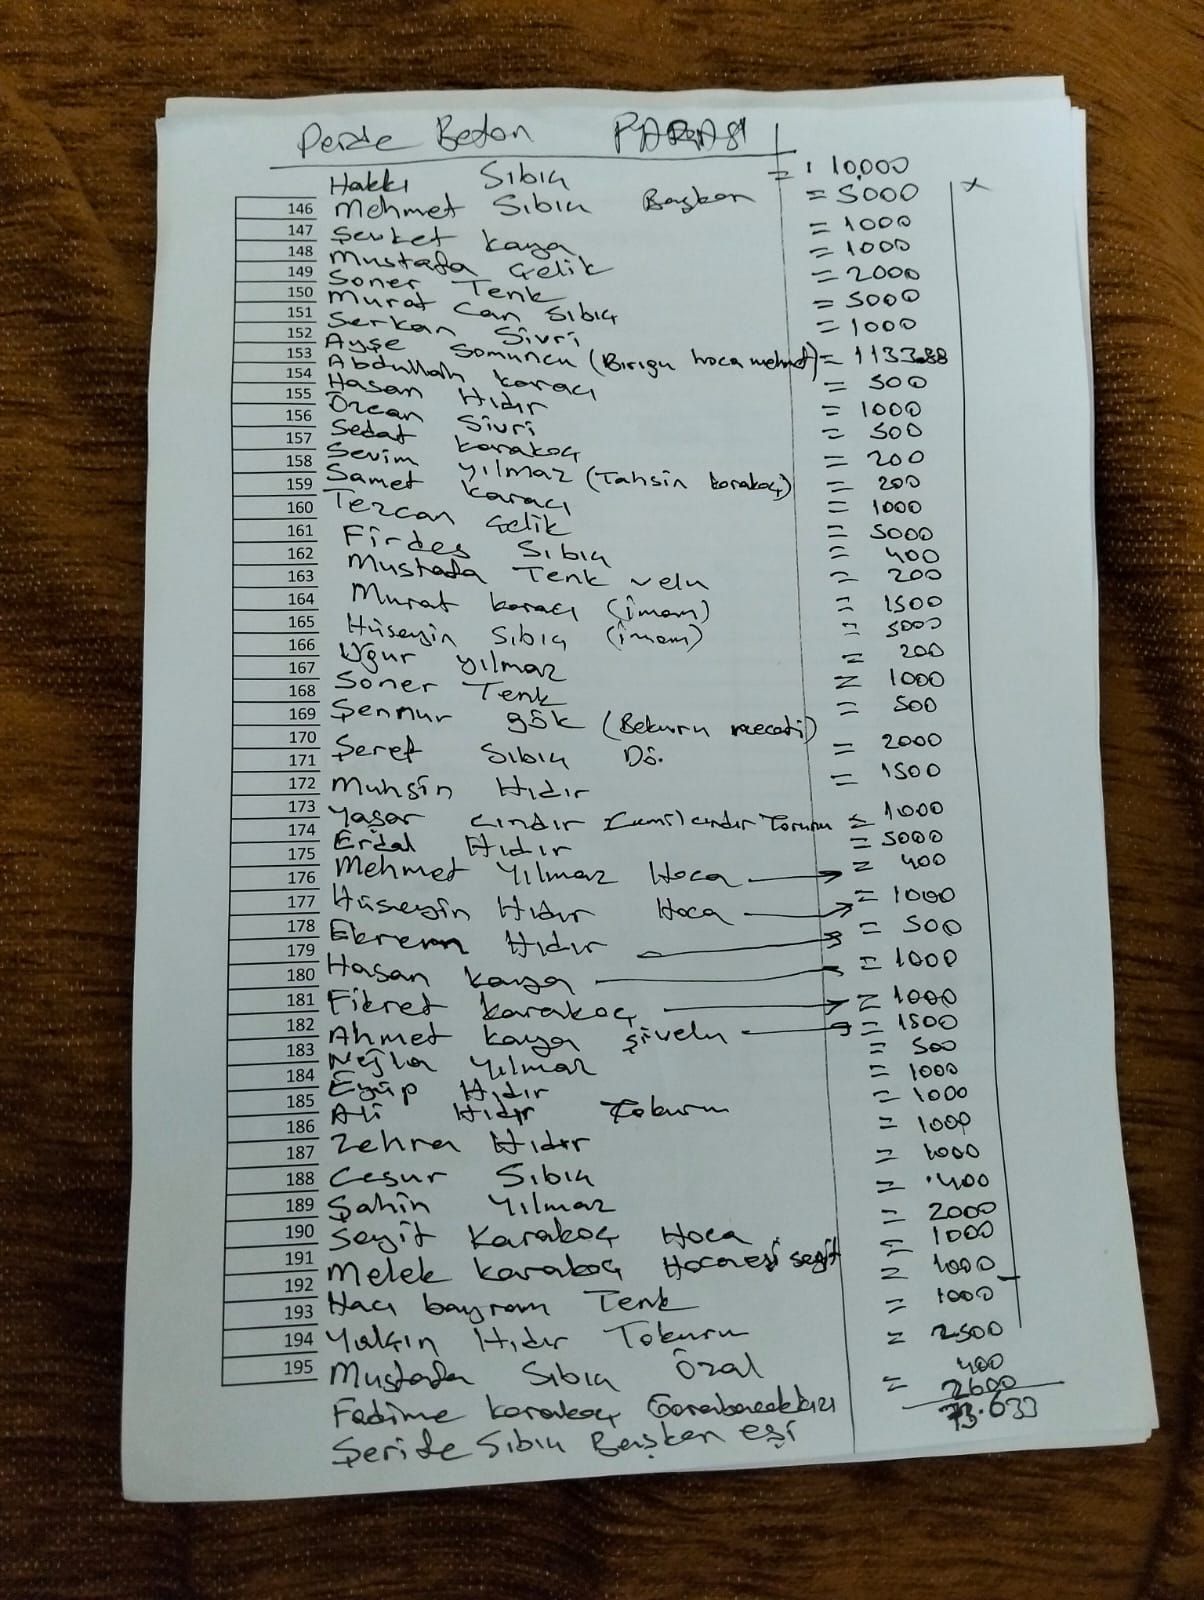 Perde Beton PARASI
Hakkı Sıbıç = 10,000
146 Mehmet Sıbıç Başkan = 5000 x
147 Şevket Kaya = 1000
148 Mustafa Çelik = 1000
149 Soner Tenk = 2000
150 Murat Can Sıbıç = 5000
151 Serkan Sivri = 1000
152 Ayşe Somuncu (Birigu hoca mehmet) = 1133.88
153 Abdullah Karacı = 500
154 Hasan Hıdır = 1000
155 Özcan Sivri = 500
156 Sedat Karakoç = 200
157 Sevim Yılmaz (Tahsin Karakoç) = 200
158 Samet Karacı = 1000
159 Tezcan Çelik = 5000
160 Firdes Sıbıç = 400
161 Mustafa Tenk velu = 200
162 Murat Karacı (imam) = 1500
163 Hüseyin Sıbıç (imam) = 5000
164 Uğur Yılmaz = 200
165 Soner Tenk = 1000
166 Şennur gök = 500
167 Şeref Sıbıç Dö. = 2000
168 Muhsin Hıdır = 1500
169 Yaşar Cındır Cemil cındır Torunu = 1000
170 Erdal Hıdır = 5000
171 Mehmet Yılmaz Hoca = 400
172 Hüseyin Hıdır Hoca = 1000
173 Ekrem Hıdır = 500
174 Hasan Kaya = 1000
175 Fikret Karakoç = 1000
176 Ahmet Kaya Şivelu = 1500
177 Nejla Yılmaz = 500
178 Eyüp Hıdır = 1000
179 Ali Hıdır Tokuru = 1000
180 Zehra Hıdır = 1000
181 Cesur Sıbıç = 1000
182 Şahin Yılmaz = 400
183 Seyit Karakoç Hoca = 2000
184 Melek Karakoç Hocanesi seyit = 1000
185 Hacı bayram Tenk = 1000
186 Yalçın Hıdır Tokuru = 1000
187 Mustafa Sıbıç Özal = 2500
188 Fadime Karakoç = 400
189 Şerife Sıbıç Başkan eşi 2600
190 73.633
191
192
193
194
195